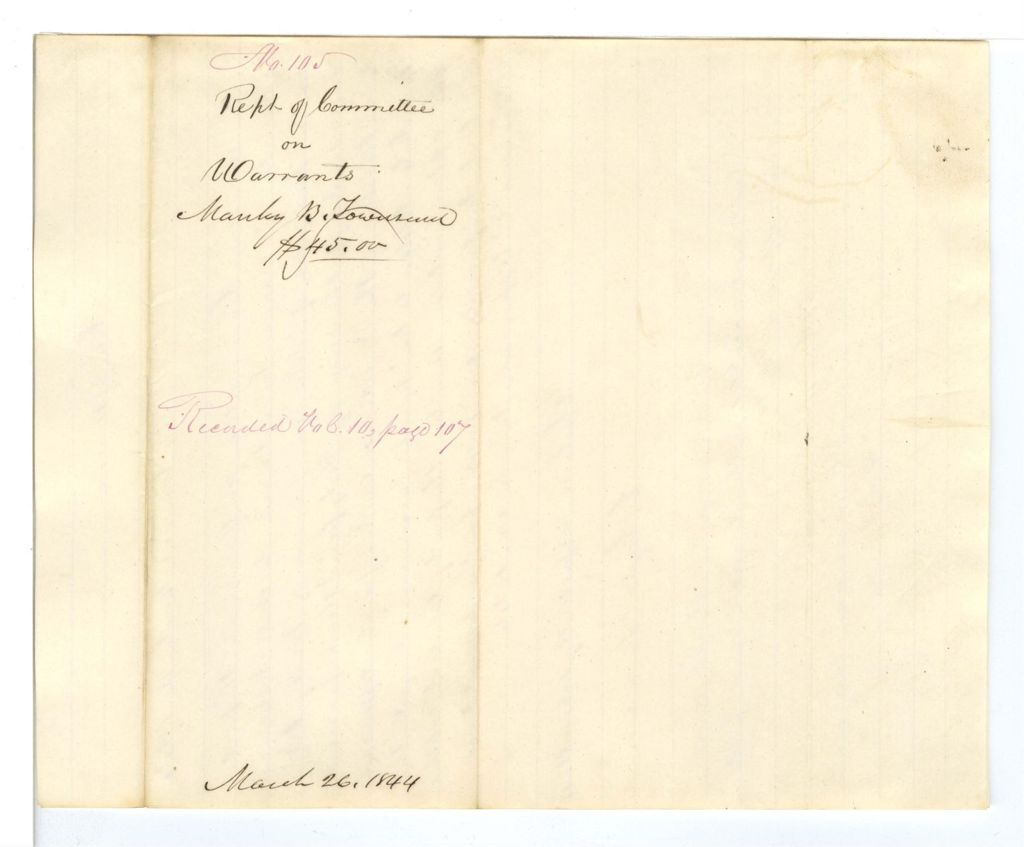 No. 105
Rept of Committee
on
Warrants
Manly B. Townsend
$45.00
Recorded Vol. 10, page 107
March 26. 1844